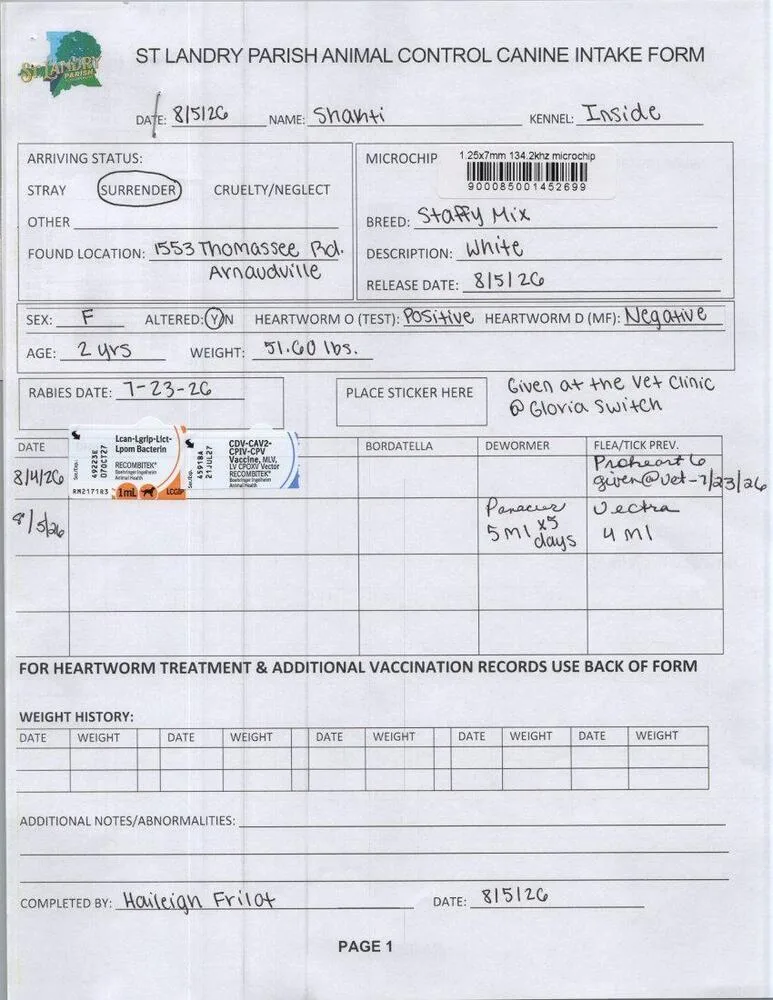 ST LANDRY PARISH
ST LANDRY PARISH ANIMAL CONTROL CANINE INTAKE FORM
DATE: 8/5/26 NAME: Shanti KENNEL: Inside
ARRIVING STATUS:
STRAY SURRENDER CRUELTY/NEGLECT
OTHER
FOUND LOCATION: 1553 Thomassee Rd.
Arnaudville
MICROCHIP 1.25x7mm 134.2khz microchip
900085001452699
BREED: Staffy Mix
DESCRIPTION: White
RELEASE DATE: 8/5/26
SEX: F ALTERED: Y/N HEARTWORM O (TEST): Positive HEARTWORM D (MF): Negative
AGE: 2 yrs WEIGHT: 51.60 lbs.
RABIES DATE: 7-23-26 PLACE STICKER HERE Given at the Vet Clinic
@ Gloria Switch
DATE BORDATELLA DEWORMER FLEA/TICK PREV.
8/4/26
Lcan-Lgrip-Lict-
Lpom Bacterin
RECOMBITEK®
Boehringer Ingelheim
Animal Health
Ser./Exp. 49223E
07OCT27
RM217183 1mL LCGIP
Ser./Exp. 45918A
21JUL27
CDV-CAV2-
CPIV-CPV
Vaccine, MLV,
LV CPOXV Vector
RECOMBITEK®
Boehringer Ingelheim
Animal Health
Proheart 6
given@vet-7/23/26
8/5/26 Panacur Vectra
5 ml x5 4 ml
days
FOR HEARTWORM TREATMENT & ADDITIONAL VACCINATION RECORDS USE BACK OF FORM
WEIGHT HISTORY:
DATE WEIGHT DATE WEIGHT DATE WEIGHT DATE WEIGHT DATE WEIGHT
ADDITIONAL NOTES/ABNORMALITIES:
COMPLETED BY: Haileigh Frilot DATE: 8/5/26
PAGE 1